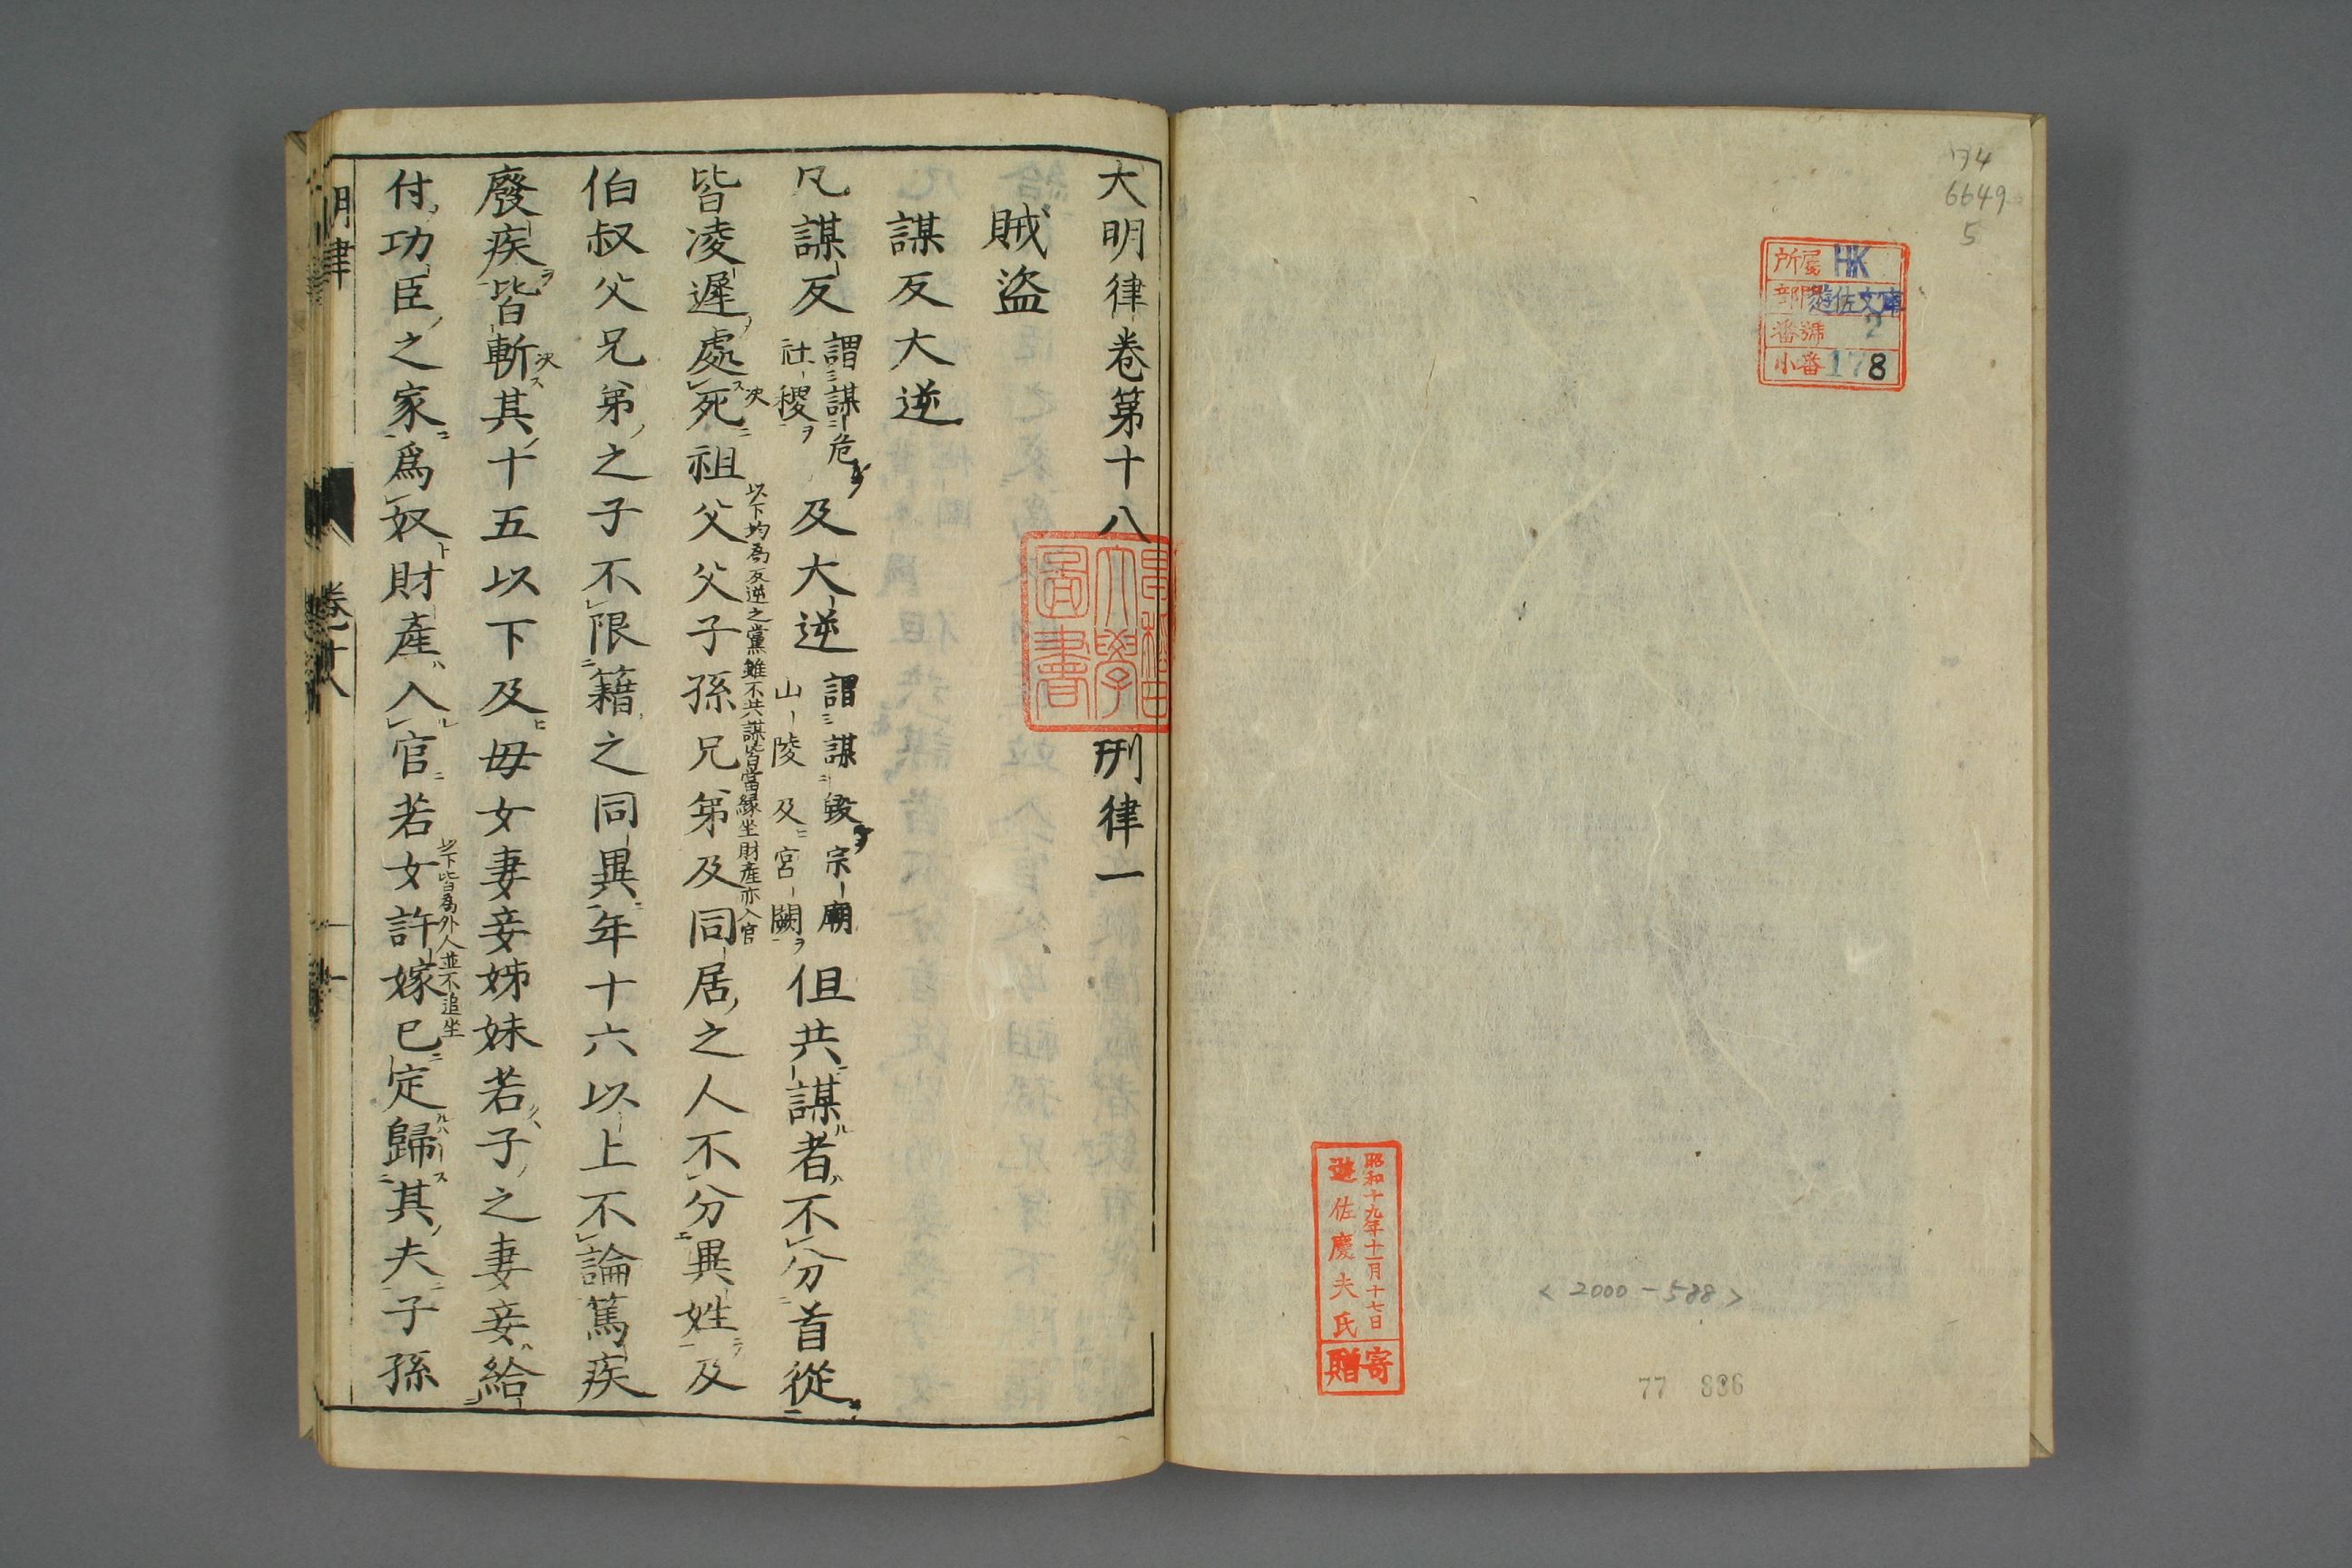 34
6649
5
所属 HK
部門 遊佐文庫
番號 2
小番 178
昭和十九年十一月十七日
遊佐慶夫氏
寄贈
<2000-588>
77 886
大明律卷第十八 刑律一
大學
圖書
賊盜
謀反大逆
凡謀反謂謀危社稷ヲ及大逆謂謀毀宗廟山陵及宮闕ヲ但共謀者ハ不分首從
皆凌遲處死祖父父子孫兄弟及同居之人不分異姓及
決ス
以下均為反逆之黨雖不共謀皆當緣坐財產亦入官
伯叔父兄弟之子不限籍之同異年十六以上不論篤疾
廢疾皆斬其十五以下及母女妻妾姊妹若子之妻妾給
決ス
付功臣之家為奴財產入官若女許嫁已定歸其夫子孫
以下皆為外人並不追坐
明律 卷十八